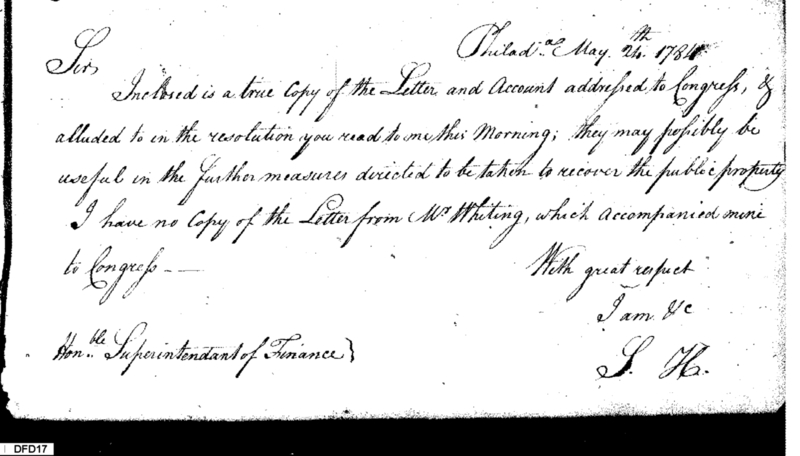 Philada. May. 24th 1784
Sir,
Inclosed is a true Copy of the Letter and Account addressed to Congress, &
alluded to in the resolution you read to me this Morning; they may possibly be
useful in the further measures directed to be taken to recover the public property
I have no Copy of the Letter from Mr. Whiting, which accompanied mine
to Congress —
With great respect
I am &c
Honble. Superintendant of Finance}
S. H.
DFD17